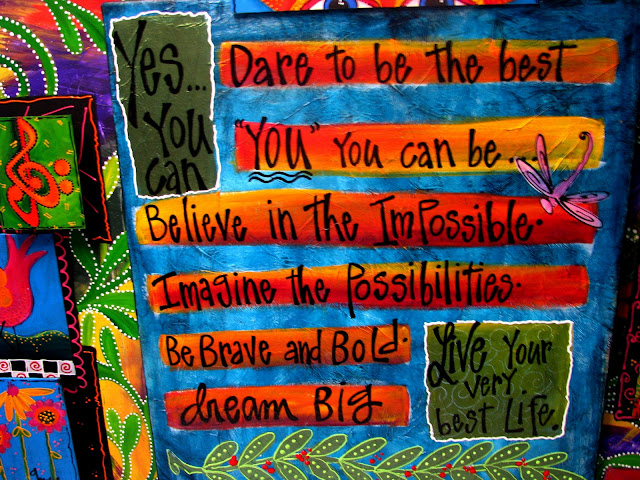 Yes...
You
can
Dare to be the best
"YOU" You can be...
Believe in the Impossible.
Imagine the Possibilities.
Be Brave and Bold.
dream Big
Live Your
very
best Life.